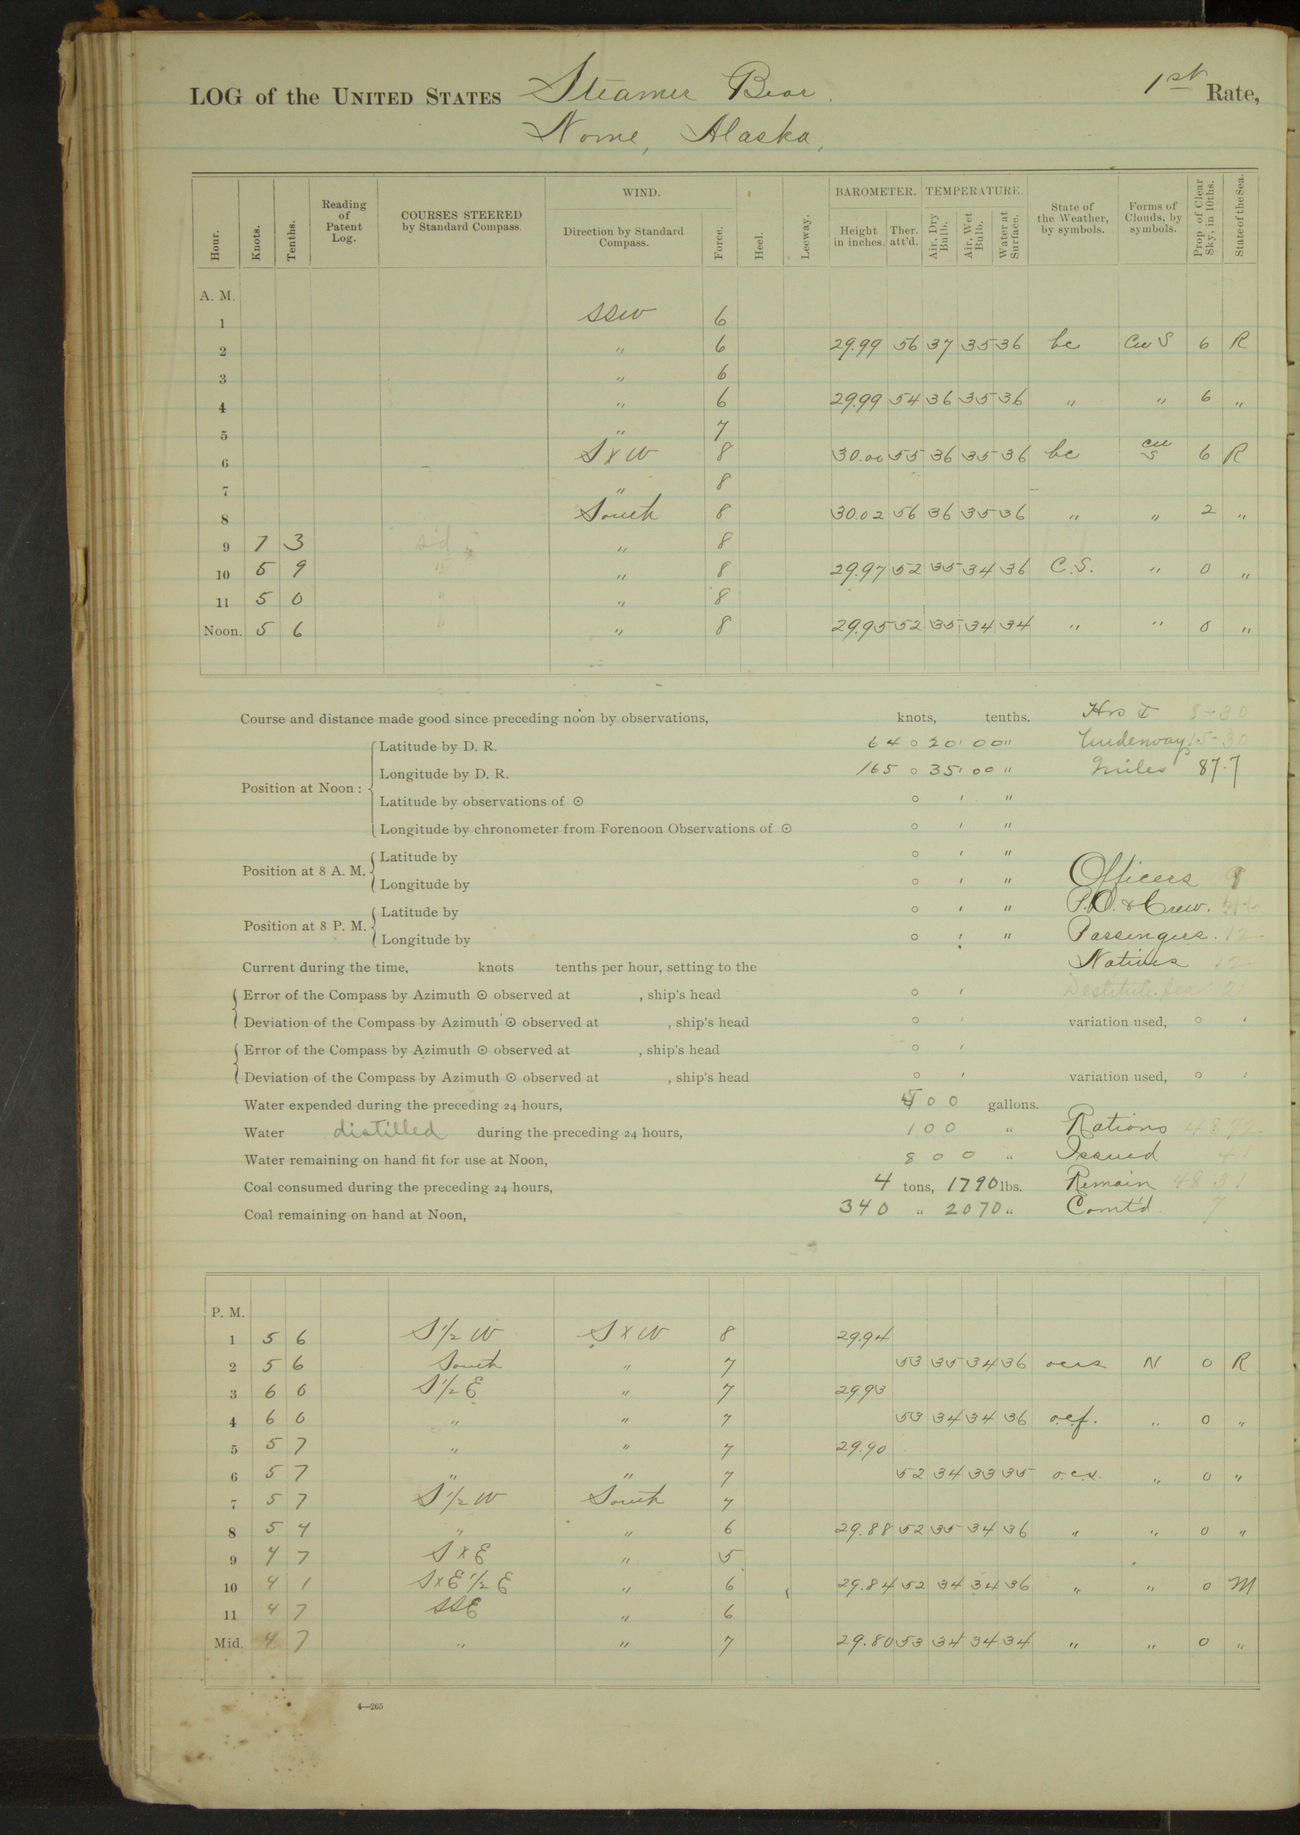 LOG of the UNITED STATES Steamer Bear. 1st Rate,
Nome, Alaska,
Hour. Knots. Tenths. Reading of Patent Log. COURSES STEERED by Standard Compass. WIND. Direction by Standard Compass. Force. Heel. Leeway. BAROMETER. Height in inches. Ther. att'd. TEMPERATURE. Air, Dry Bulb. Air, Wet Bulb. Water at Surface. State of the Weather, by symbols. Forms of Clouds, by symbols. Prop of Clear Sky, in 10ths. State of the Sea.
A. M.
1 SSW 6
2 " 6 29.99 56 37 35 36 bc Cu S 6 R
3 " 6
4 " 6 29.99 54 36 35 36 " " 6 "
5 " 7
6 SXW 8 30.00 55 36 35 36 bc cu S 6 R
7 " 8
8 South 8 30.02 56 36 35 36 " " 2 "
9 7 3 s'd " 8
10 5 9 " " 8 29.97 52 35 34 36 C.S. " 0 "
11 5 0 " " 8
Noon. 5 6 " " 8 29.95 52 35 34 34 " " 0 "
Course and distance made good since preceding noon by observations, knots, tenths. 8-30
Position at Noon : Latitude by D. R. 64 ° 20 ' 00 " Underway 15-30
Longitude by D. R. 165 ° 35 ' 00 " Miles 87.7
Latitude by observations of ☉ ° ' "
Longitude by chronometer from Forenoon Observations of ☉ ° ' "
Position at 8 A. M. Latitude by ° ' "
Longitude by ° ' " Officers 9
Position at 8 P. M. Latitude by ° ' " P.O. & Crew.
Longitude by ° ' " Passengers. 12
Current during the time, knots tenths per hour, setting to the Natives 12
Error of the Compass by Azimuth ☉ observed at , ship's head ° ' Destitute 21
Deviation of the Compass by Azimuth ☉ observed at , ship's head ° ' variation used, ° '
Error of the Compass by Azimuth ☉ observed at , ship's head ° '
Deviation of the Compass by Azimuth ☉ observed at , ship's head ° ' variation used, ° '
Water expended during the preceding 24 hours, 00 gallons.
Water distilled during the preceding 24 hours, 100 " Rations
Water remaining on hand fit for use at Noon, 800 " Issued 41
Coal consumed during the preceding 24 hours, 4 tons, 1790 lbs. Remain 4831
Coal remaining on hand at Noon, 340 " 2070 " Comt'd. 7
P. M.
1 5 6 S 1/2 W SXW 8 29.94
2 5 6 South " 7 53 35 34 36 ocrs N 0 R
3 6 0 S 1/2 E " 7 29.93
4 6 0 " " 7 53 34 34 36 o.c.f. " 0 "
5 5 7 " " 7 29.90
6 5 7 " " 7 52 34 33 35 o.c.s. " 0 "
7 5 7 S 1/2 W South 7
8 5 4 " " 6 29.88 52 35 34 36 " " 0 "
9 4 7 SXE " 5
10 4 1 SXE 1/2 E " 6 29.84 52 34 34 36 " " 0 M
11 4 7 SSE " 6
Mid. 4 7 " " 7 29.80 53 34 34 34 " " 0 "
4—265